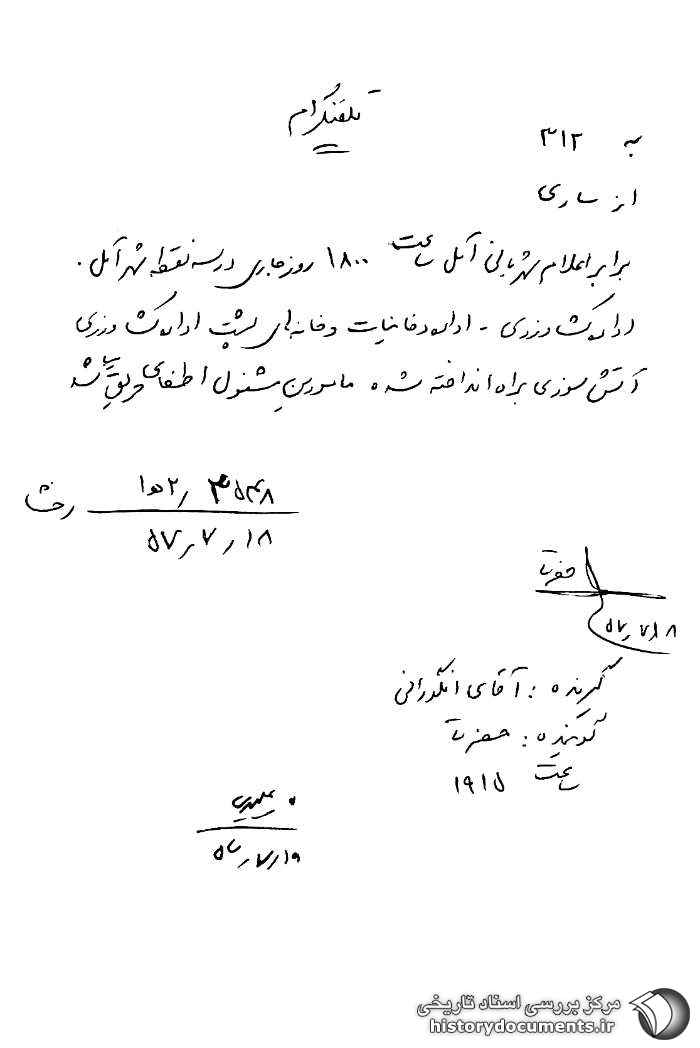 تلفنگرام
به ۳۱۲
از ساری
برابر اعلام شهربانی آمل ساعت ۱۸۰۰ روز جاری در سه نقطه شهر آمل.
اداره کشاورزی - اداره دخانیات و خانه‌های پشت اداره کشاورزی
آتش سوزی براه انداخته شده مامورین مشغول اطفای حریق میباشند
۳۵۴۸ /
۵۷/۷/۱۸
حضرتی
۵۷/۷/۱۸
گیرنده : آقای انگورانی
گوینده : حضرتی
ساعت ۱۹۱۵
۵۷/۷/۱۹
مرکز بررسی اسناد تاریخی
historydocuments.ir